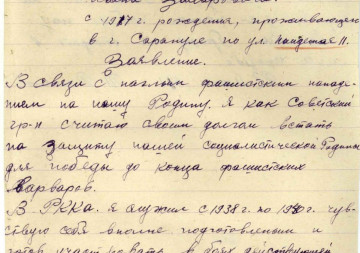 с 1917 г. рождения, проживающего
в г. Сарапуле по ул.
Заявление.
В связи с наглым фашистским нападе-
нием на нашу Родину. Я как Советский
гр-н считаю своим долгом встать
на защиту нашей социалистической Родины
для победы до конца фашистских
варваров.
В РККА. я служил с 1938 г. по 1940 г. чув-
ствую себя вполне подготовленным и
готов участвовать в боях действующей